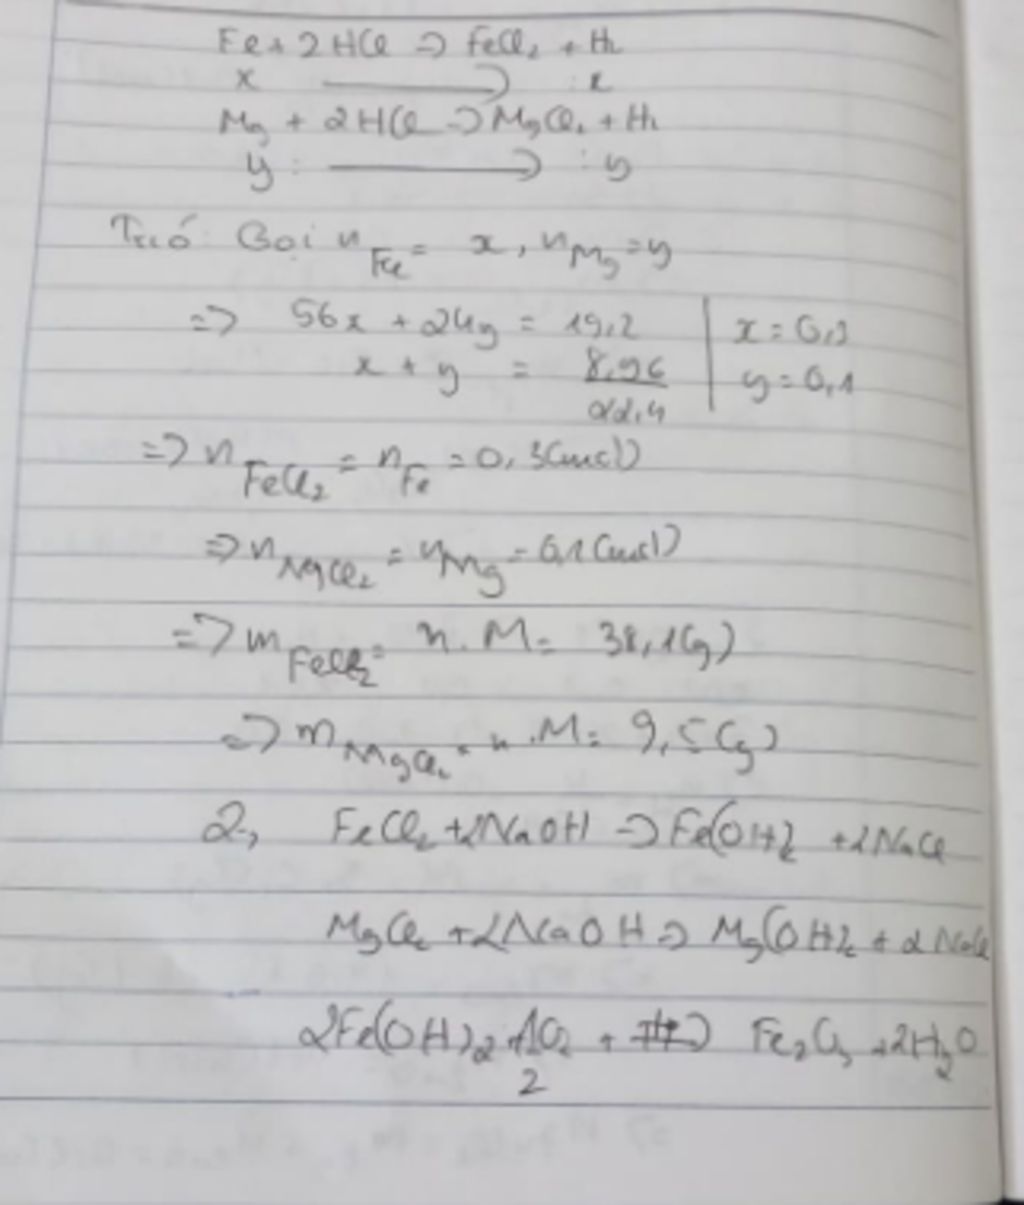 Fe + 2HCl => FeCl2 + H2
x ⟶ : x
Mg + 2HCl => MgCl2 + H2
y : ⟶ : y
Gọi nFe = x, nMg = y
=> 56x + 24y = 19,2 | x = 0,3
x + y = 8,96/22,4 | y = 0,1
=> nFeCl2 = nFe = 0,3(mol)
=> nMgCl2 = nMg = 0,1(mol)
=> mFeCl2 = n.M = 38,1(g)
=> mMgCl2 = n.M = 9,5(g)
2, FeCl2 + 2NaOH => Fe(OH)2 + 2NaCl
MgCl2 + 2NaOH => Mg(OH)2 + 2NaCl
2Fe(OH)2 + 1/2O2 + Fe2O3 + 2H2O